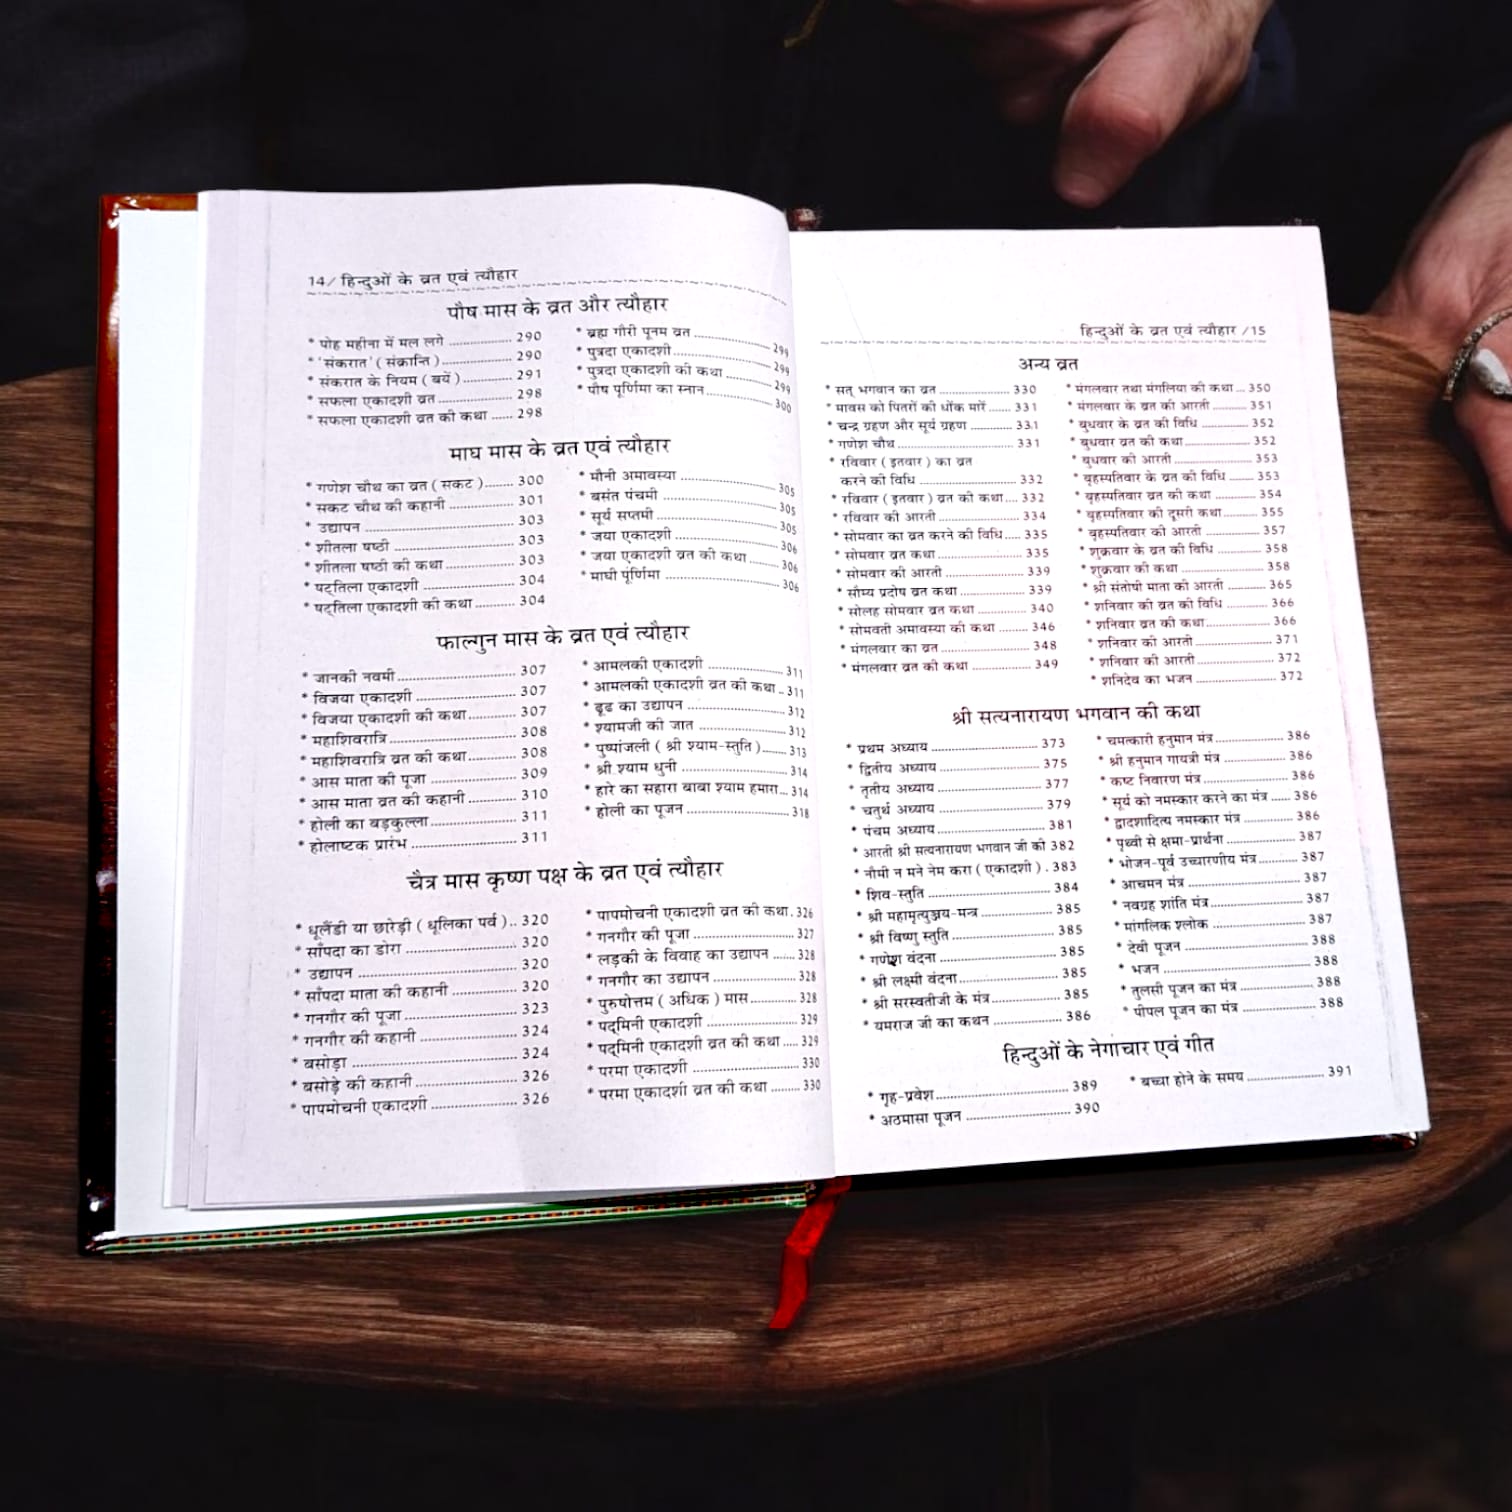 14/ हिन्दुओं के व्रत एवं त्यौहार
पौष मास के व्रत और त्यौहार
* पोह महीना में मल लगे ................ 290
* 'संकरात' ( संक्रान्ति ).................. 290
* संकरात के नियम ( बयें )............. 291
* सफला एकादशी व्रत .................... 298
* सफला एकादशी व्रत की कथा ...... 298
* ब्रह्म गौरी पूनम व्रत ..................... 299
* पुत्रदा एकादशी.......................... 299
* पुत्रदा एकादशी की कथा ............. 299
* पौष पूर्णिमा का स्नान................... 300
माघ मास के व्रत एवं त्यौहार
* गणेश चौथ का व्रत ( सकट )....... 300
* सकट चौथ की कहानी ................ 301
* उद्यापन ..................................... 303
* शीतला षष्ठी .............................. 303
* शीतला षष्ठी की कथा.................. 303
* षट्तिला एकादशी ....................... 304
* षट्तिला एकादशी की कथा.......... 304
* मौनी अमावस्या ......................... 305
* बसंत पंचमी .............................. 305
* सूर्य सप्तमी ............................... 305
* जया एकादशी ........................... 306
* जया एकादशी व्रत की कथा......... 306
* माघी पूर्णिमा ............................. 306
फाल्गुन मास के व्रत एवं त्यौहार
* जानकी नवमी............................. 307
* विजया एकादशी ......................... 307
* विजया एकादशी की कथा............ 307
* महाशिवरात्रि............................... 308
* महाशिवरात्रि व्रत की कथा............ 308
* आस माता की पूजा ..................... 309
* आस माता व्रत की कहानी............ 310
* होली का बड़कुल्ला...................... 311
* होलाष्टक प्रारंभ .......................... 311
* आमलकी एकादशी ..................... 311
* आमलकी एकादशी व्रत की कथा .. 311
* ढूढ का उद्यापन .......................... 312
* श्यामजी की जात ........................ 312
* पुष्पांजली ( श्री श्याम-स्तुति )....... 313
* श्री श्याम धुनी ............................ 314
* हारे का सहारा बाबा श्याम हमारा... 314
* होली का पूजन ........................... 318
चैत्र मास कृष्ण पक्ष के व्रत एवं त्यौहार
* धूलैंडी या छारेड़ी ( धूलिका पर्व ).. 320
* साँपदा का डोरा .......................... 320
* उद्यापन ..................................... 320
* साँपदा माता की कहानी ............... 320
* गनगौर की पूजा .......................... 323
* गनगौर की कहानी ....................... 324
* बसोड़ा ...................................... 324
* बसोड़े की कहानी ........................ 326
* पापमोचनी एकादशी .................... 326
* पापमोचनी एकादशी व्रत की कथा. 326
* गनगौर की पूजा .......................... 327
* लड़की के विवाह का उद्यापन ...... 328
* गनगौर का उद्यापन ...................... 328
* पुरुषोत्तम ( अधिक ) मास............ 328
* पद्मिनी एकादशी ........................ 329
* पद्मिनी एकादशी व्रत की कथा ..... 329
* परमा एकादशी ........................... 330
* परमा एकादशी व्रत की कथा ........ 330
हिन्दुओं के व्रत एवं त्यौहार /15
अन्य व्रत
* सत् भगवान का व्रत ................... 330
* मावस को पितरों की धोंक मारें ...... 331
* चन्द्र ग्रहण और सूर्य ग्रहण ............ 331
* गणेश चौथ................................. 331
* रविवार ( इतवार ) का व्रत
करने की विधि ........................... 332
* रविवार ( इतवार ) व्रत की कथा.... 332
* रविवार की आरती....................... 334
* सोमवार का व्रत करने की विधि..... 335
* सोमवार व्रत कथा....................... 335
* सोमवार की आरती ..................... 339
* सौम्य प्रदोष व्रत कथा.................. 339
* सोलह सोमवार व्रत कथा ............. 340
* सोमवती अमावस्या की कथा ........ 346
* मंगलवार का व्रत........................ 348
* मंगलवार व्रत की कथा ................ 349
* मंगलवार तथा मंगलिया की कथा ... 350
* मंगलवार के व्रत की आरती .......... 351
* बुधवार के व्रत की विधि .............. 352
* बुधवार व्रत की कथा................... 352
* बुधवार की आरती ...................... 353
* बृहस्पतिवार के व्रत की विधि ....... 353
* बृहस्पतिवार व्रत की कथा ............ 354
* बृहस्पतिवार की दूसरी कथा......... 355
* बृहस्पतिवार की आरती ............... 357
* शुक्रवार के व्रत की विधि ............. 358
* शुक्रवार की कथा ....................... 358
* श्री संतोषी माता की आरती .......... 365
* शनिवार की व्रत की विधि ............ 366
* शनिवार व्रत की कथा.................. 366
* शनिवार की आरती..................... 371
* शनिवार की आरती..................... 372
* शनिदेव का भजन ....................... 372
श्री सत्यनारायण भगवान की कथा
* प्रथम अध्याय ............................ 373
* द्वितीय अध्याय .......................... 375
* तृतीय अध्याय ........................... 377
* चतुर्थ अध्याय ........................... 379
* पंचम अध्याय............................ 381
* आरती श्री सत्यनारायण भगवान जी की 382
* नौमी न मने नेम करा ( एकादशी ) . 383
* शिव-स्तुति ............................... 384
* श्री महामृत्युञ्जय-मन्त्र .................. 385
* श्री विष्णु स्तुति .......................... 385
* गणेश वंदना ............................. 385
* श्री लक्ष्मी वंदना......................... 385
* श्री सरस्वतीजी के मंत्र................. 385
* यमराज जी का कथन ................. 386
* चमत्कारी हनुमान मंत्र.................. 386
* श्री हनुमान गायत्री मंत्र ................ 386
* कष्ट निवारण मंत्र ....................... 386
* सूर्य को नमस्कार करने का मंत्र ...... 386
* द्वादशादित्य नमस्कार मंत्र ............. 386
* पृथ्वी से क्षमा-प्रार्थना................... 387
* भोजन-पूर्व उच्चारणीय मंत्र............ 387
* आचमन मंत्र .............................. 387
* नवग्रह शांति मंत्र......................... 387
* मांगलिक श्लोक ......................... 387
* देवी पूजन ................................. 388
* भजन ....................................... 388
* तुलसी पूजन का मंत्र ................... 388
* पीपल पूजन का मंत्र ................... 388
हिन्दुओं के नेगाचार एवं गीत
* गृह-प्रवेश.................................. 389
* अठमासा पूजन .......................... 390
* बच्चा होने के समय ..................... 391